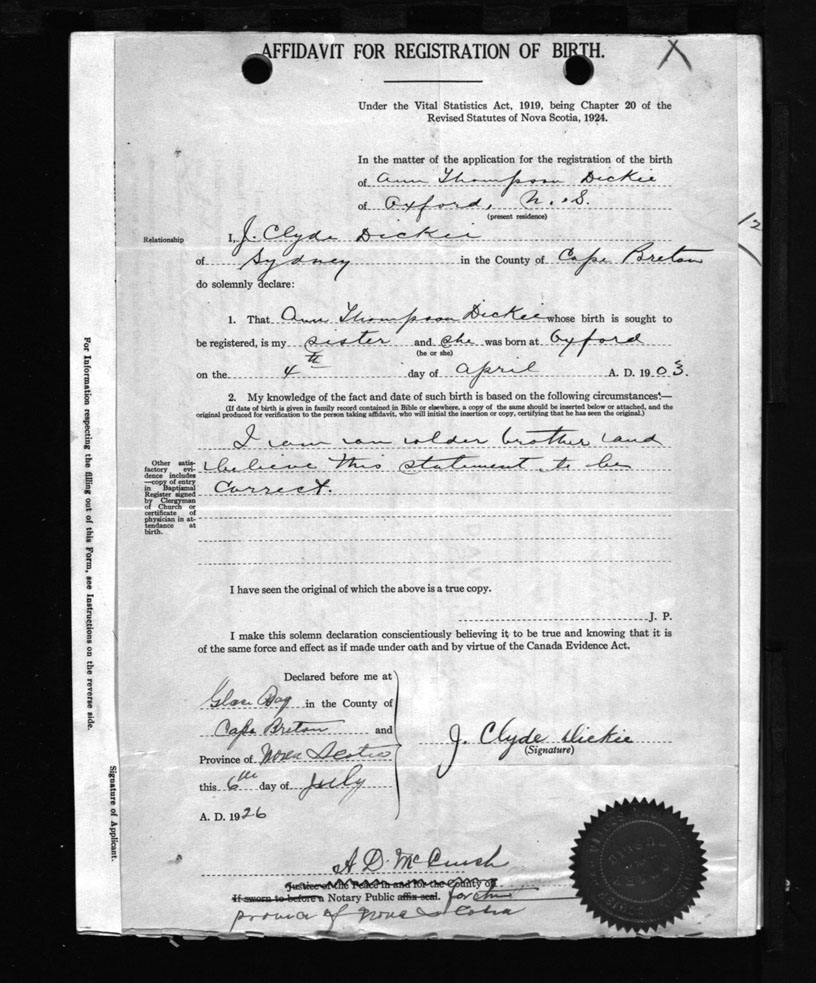 AFFIDAVIT FOR REGISTRATION OF BIRTH.
X
Under the Vital Statistics Act, 1919, being Chapter 20 of the
Revised Statutes of Nova Scotia, 1924.
In the matter of the application for the registration of the birth
of Ann Thompson Dickie
of Oxford, N.S.
(present residence)
Relationship
I, J. Clyde Dickie
of Sydney in the County of Cape Breton
do solemnly declare:
1. That Ann Thompson Dickie whose birth is sought to
be registered, is my sister and she was born at Oxford
(he or she)
on the 4th day of April A. D. 1903.
2. My knowledge of the fact and date of such birth is based on the following circumstances:—
(If date of birth is given in family record contained in Bible or elsewhere, a copy of the same should be inserted below or attached, and the
original produced for verification to the person taking affidavit, who will initial the insertion or copy, certifying that he has seen the original.)
I am an older brother and
believe this statement to be
correct.
Other satis-
factory evi-
dence includes
—copy of entry
in Baptismal
Register signed
by Clergyman
of Church or
certificate of
physician in at-
tendance at
birth.
I have seen the original of which the above is a true copy.
J. P.
I make this solemn declaration conscientiously believing it to be true and knowing that it is
of the same force and effect as if made under oath and by virtue of the Canada Evidence Act.
Declared before me at
Glace Bay in the County of
Cape Breton and
Province of Nova Scotia
this 6th day of July
A. D. 1926
J. Clyde Dickie
(Signature)
A. D. McCuish
Justice of the Peace in and for the County of
If sworn to before a Notary Public affix seal. for the
province of Nova Scotia
For Information respecting the filling out of this Form, see Instructions on the reverse side.
Signature of Applicant.